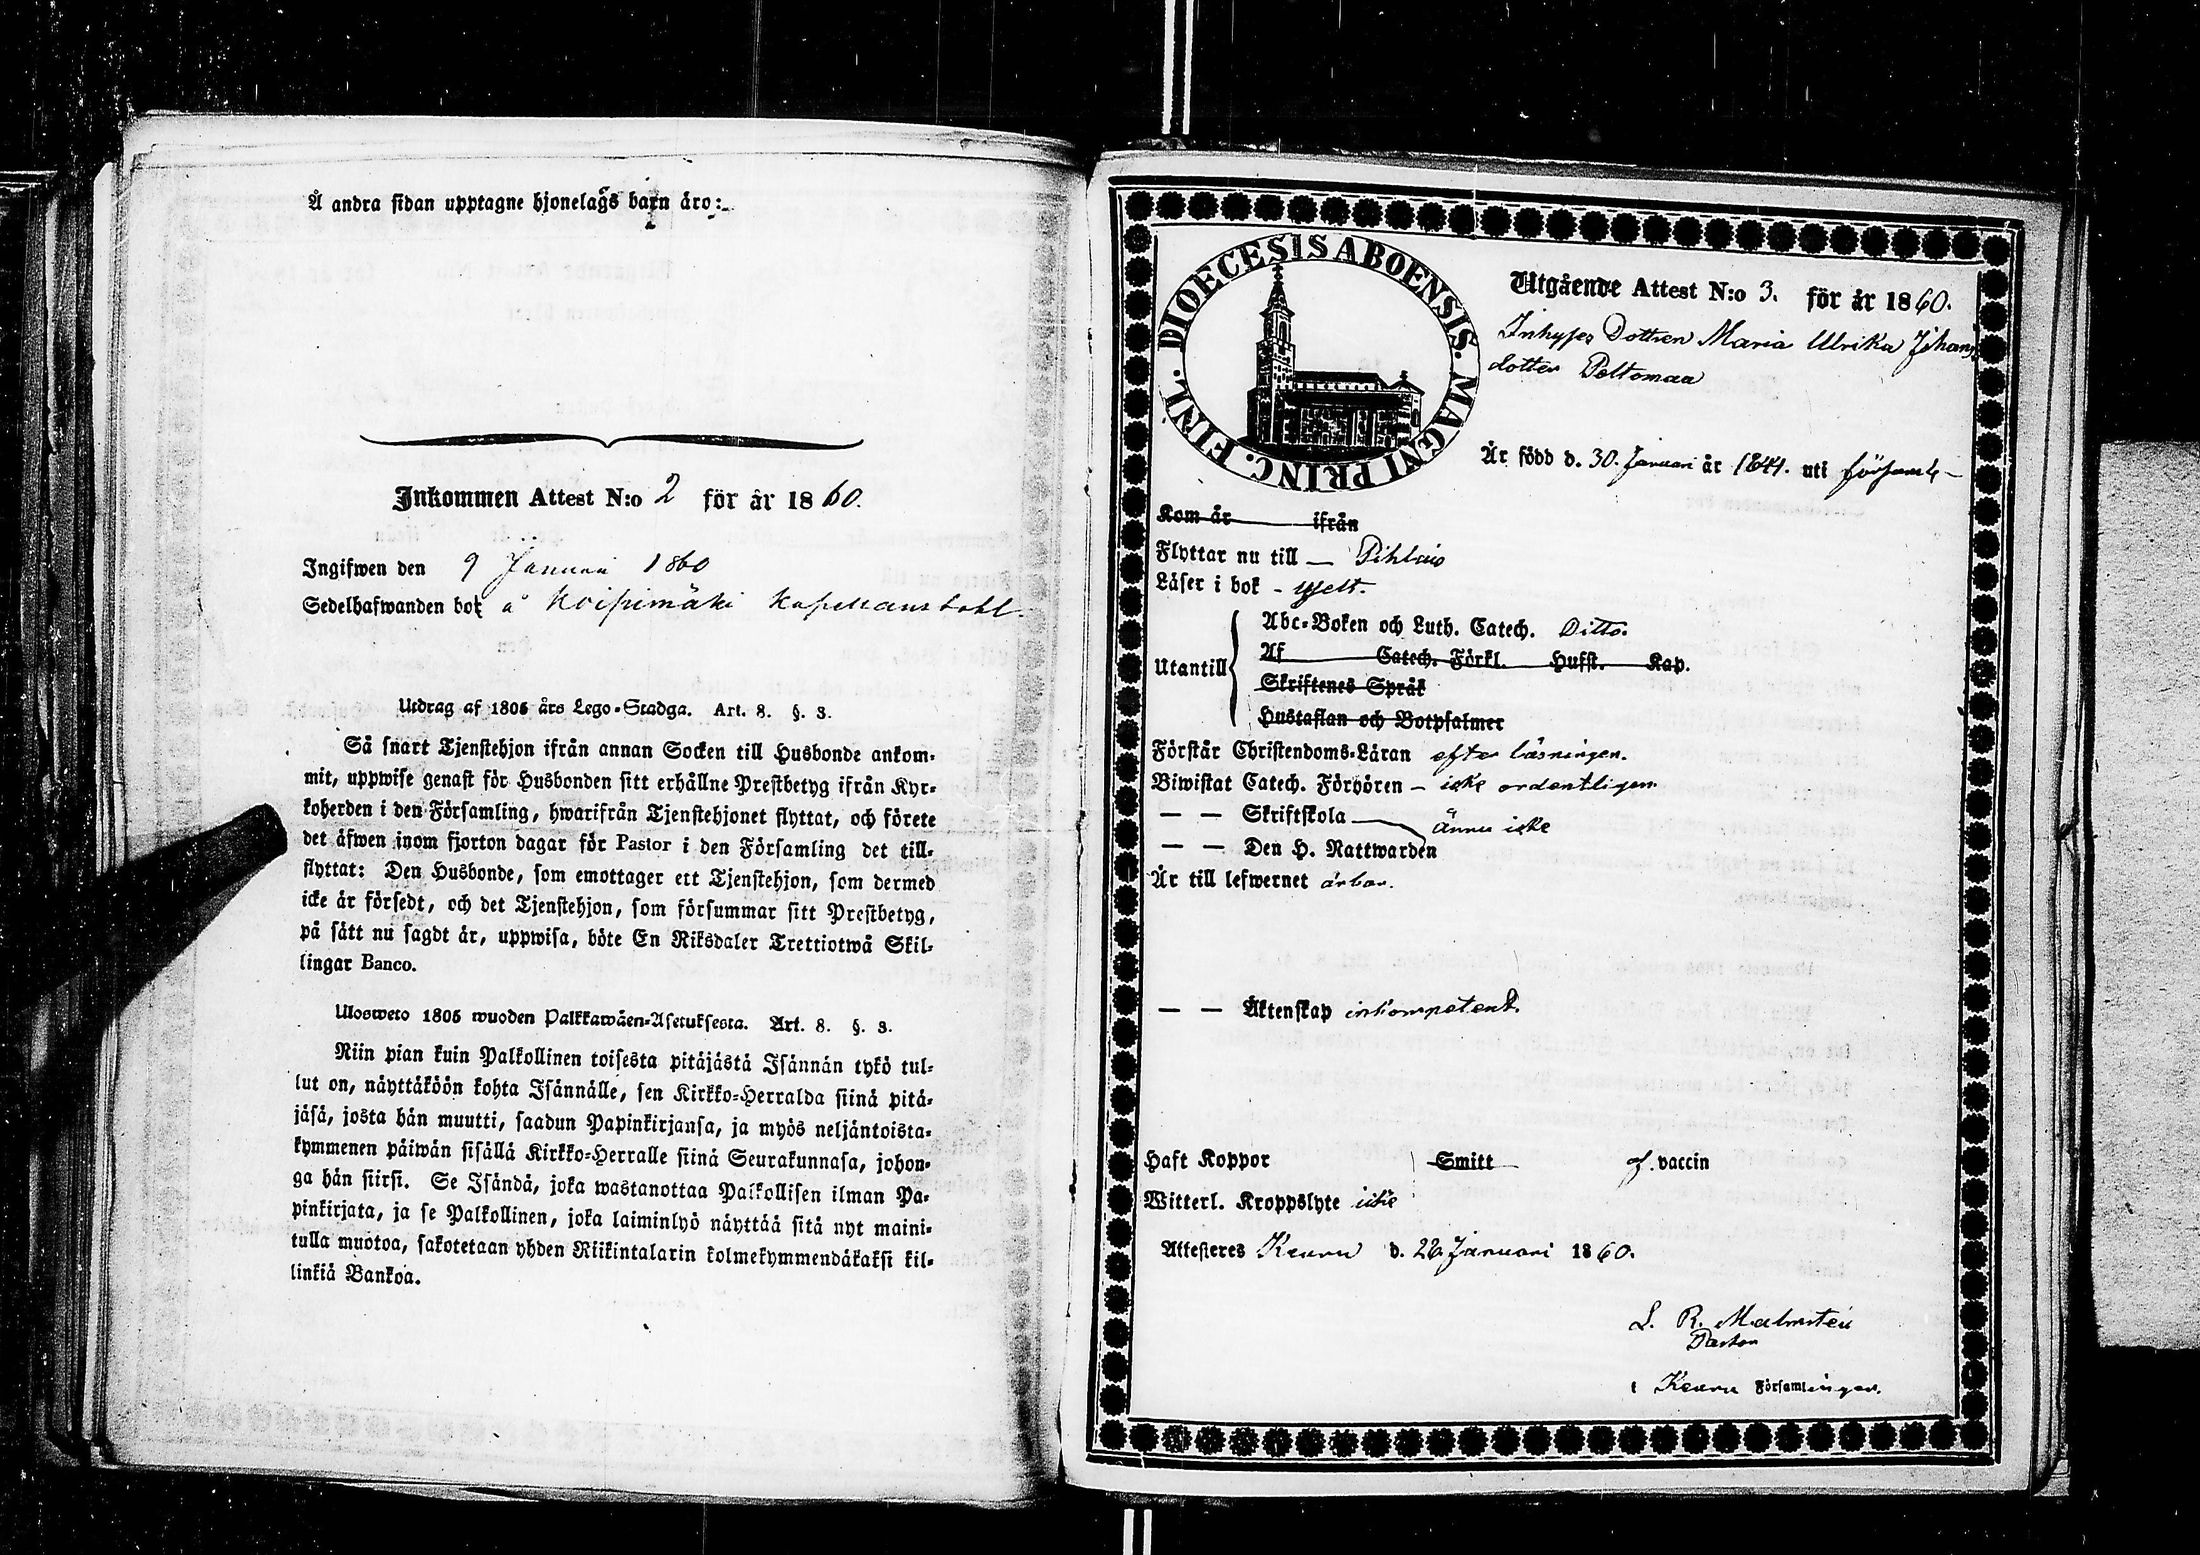 Å andra sidan upptagne hjonelags barn äro:
Inkommen Attest N:o 2 för år 1860.
Ingifwen den 9 Januari 1860
Sedelhafwanden bor å Koipimäki Kapellansbohl.
Utdrag af 1805 års Lego-Stadga. Art. 8. §. 3.
Så snart Tjenstehjon ifrån annan Socken till Husbonde ankom-
mit, uppwise genast för Husbonden sitt erhållne Prestbetyg ifrån Kyr-
koherden i den Församling, hwarifrån Tjenstehjonet flyttat, och förete
det äfwen inom fjorton dagar för Pastor i den Församling det till-
flyttat: Den Husbonde, som emottager ett Tjenstehjon, som dermed
icke är försedt, och det Tjenstehjon, som försummar sitt Prestbetyg,
på sätt nu sagdt är, uppwisa, böte En Riksdaler Trettiotwå Skil-
lingar Banco.
Ulosweto 1805 wuoden Palkkawäen-Asetuksesta. Art. 8. §. 3.
Niin pian kuin Palkollinen toisesta pitäjästä Isännän tykö tul-
lut on, näyttäköön kohta Isännälle, sen Kirkko-Herralda siinä pitä-
jäsä, josta hän muutti, saadun Papinkirjansa, ja myös neljäntoista-
kymmenen päiwän sisällä Kirkko-Herralle siinä Seurakunnasa, johon-
ga hän siirsi. Se Isändä, joka wastanottaa Palkollisen ilman Pa-
pinkirjata, ja se Palkollinen, joka laiminlyö näyttää sitä nyt maini-
tulla muotoa, sakotetaan yhden Riikintalarin kolmekymmendäkaksi kil-
linkiä Bankoa.
DIOECESIS ABOENSIS. MAGNI PRINC. FINL.
Utgående Attest N:o 3. för år 1860.
Inhyses Dottren Maria Ulrika Johans
dotter Peltomaa
Är född d. 30. Januari år 1844. uti församl-
Kom år ifrån
Flyttar nu till — Pihlais
Läser i bok - Njelt.
Utantill
Abc-Boken och Luth. Catech. Ditto.
Af Catech. Förkl. Hufst. Kap.
Skriftenes Språk
Hustaflan och Botpsalmer
Förstår Christendoms-Läran efter läsningen.
Biwistat Catech. Förhören — icke ordentligen
— — Skriftskola ännu icke
— — Den H. Nattwarden
Är till lefwernet ärbar.
— — Äktenskap inkompetent.
Haft Koppor Smitt af. vaccin
Witterl. Kroppslyte icke
Attesteres Keuru d. 22 Januari 1860.
L. R. Malmstén
Pastor
i Keuru Församlingen.